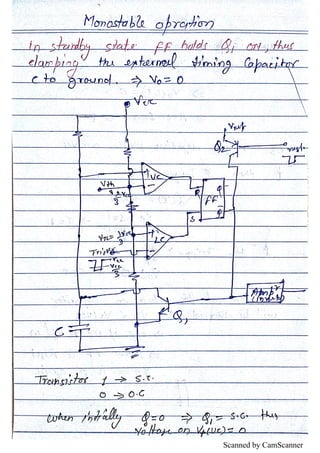 Monostable opration
In standby state FF holds Q₁ on, thus
clamping the external timing Capacitor
C to ground. ⇒ V₀ = 0
Vcc
Vref
Q₂
UC
R
Q
FF
S
Q̅
Vth
LC
C
Q₁
Transistor 1 → S.C.
0 → O.C
when initially Q=0 ⇒ Q₁ = S.C. thus
Voltage on
= 0
Scanned by CamScanner